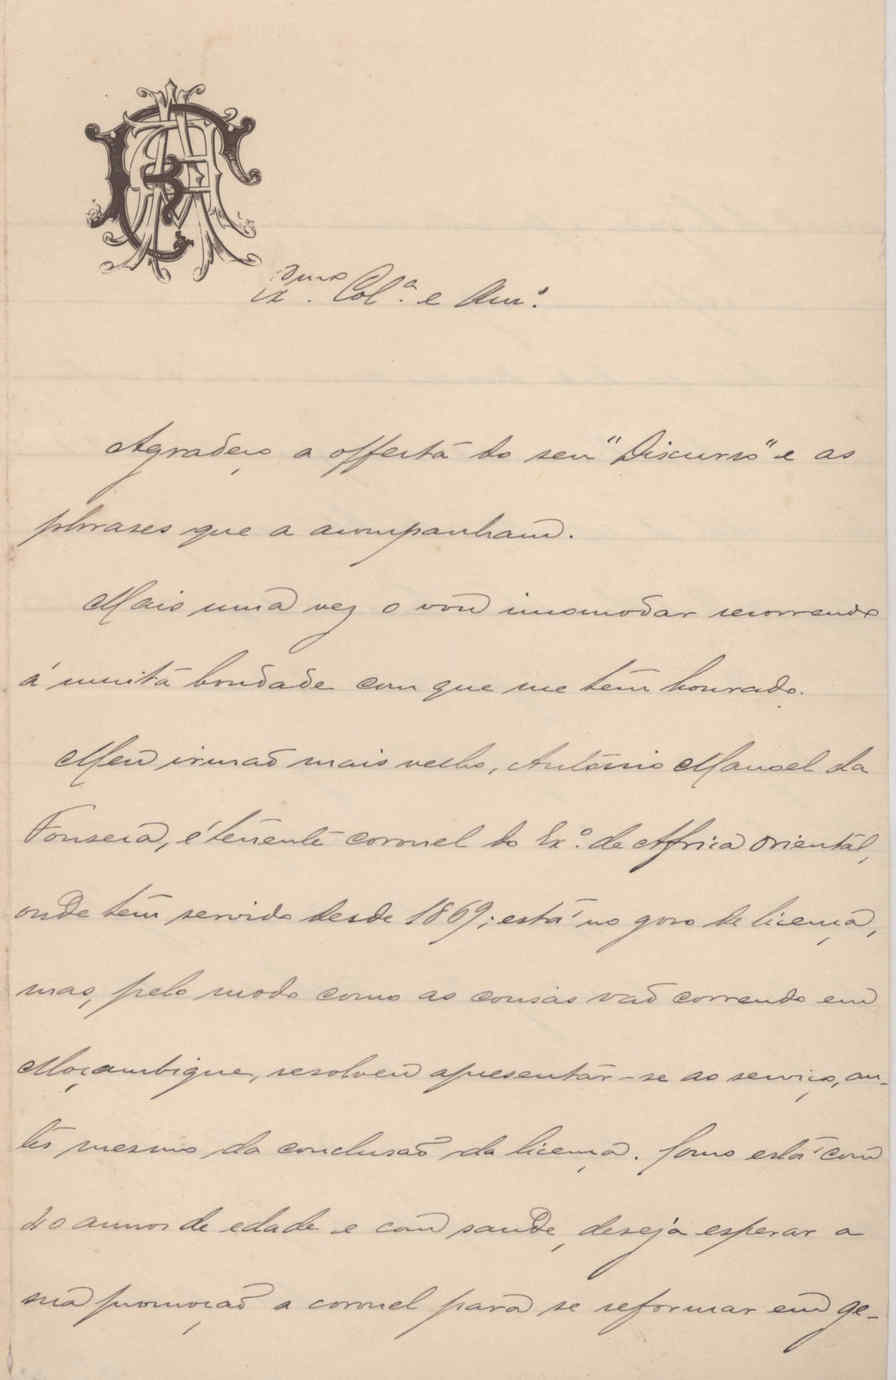 Ex.mo Col.ª e Am.º
Agradeço a offerta do seu "Discurso" e as
phrases que a acompanham.
Mais uma vez o vou incomodar recorrendo
á muita bondade com que me tem honrado.
Meu irmão mais velho, António Manoel da
Fonseca, é tenente coronel do Ex.º de Africa Oriental,
onde tem servido desde 1869; está no goso de licença,
mas, pelo modo como as cousas vão correndo em
Moçambique, resolveu apresentar-se ao serviço, an-
tes mesmo da conclusão da licença. Como está com
40 annos de edade e com saude, deseja esperar a
sua promoção a coronel para se reformar em ge-